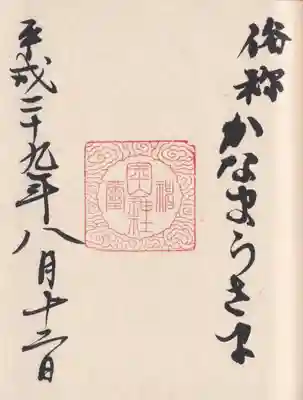 俗称かなまうさま
平成二十九年八月十二日